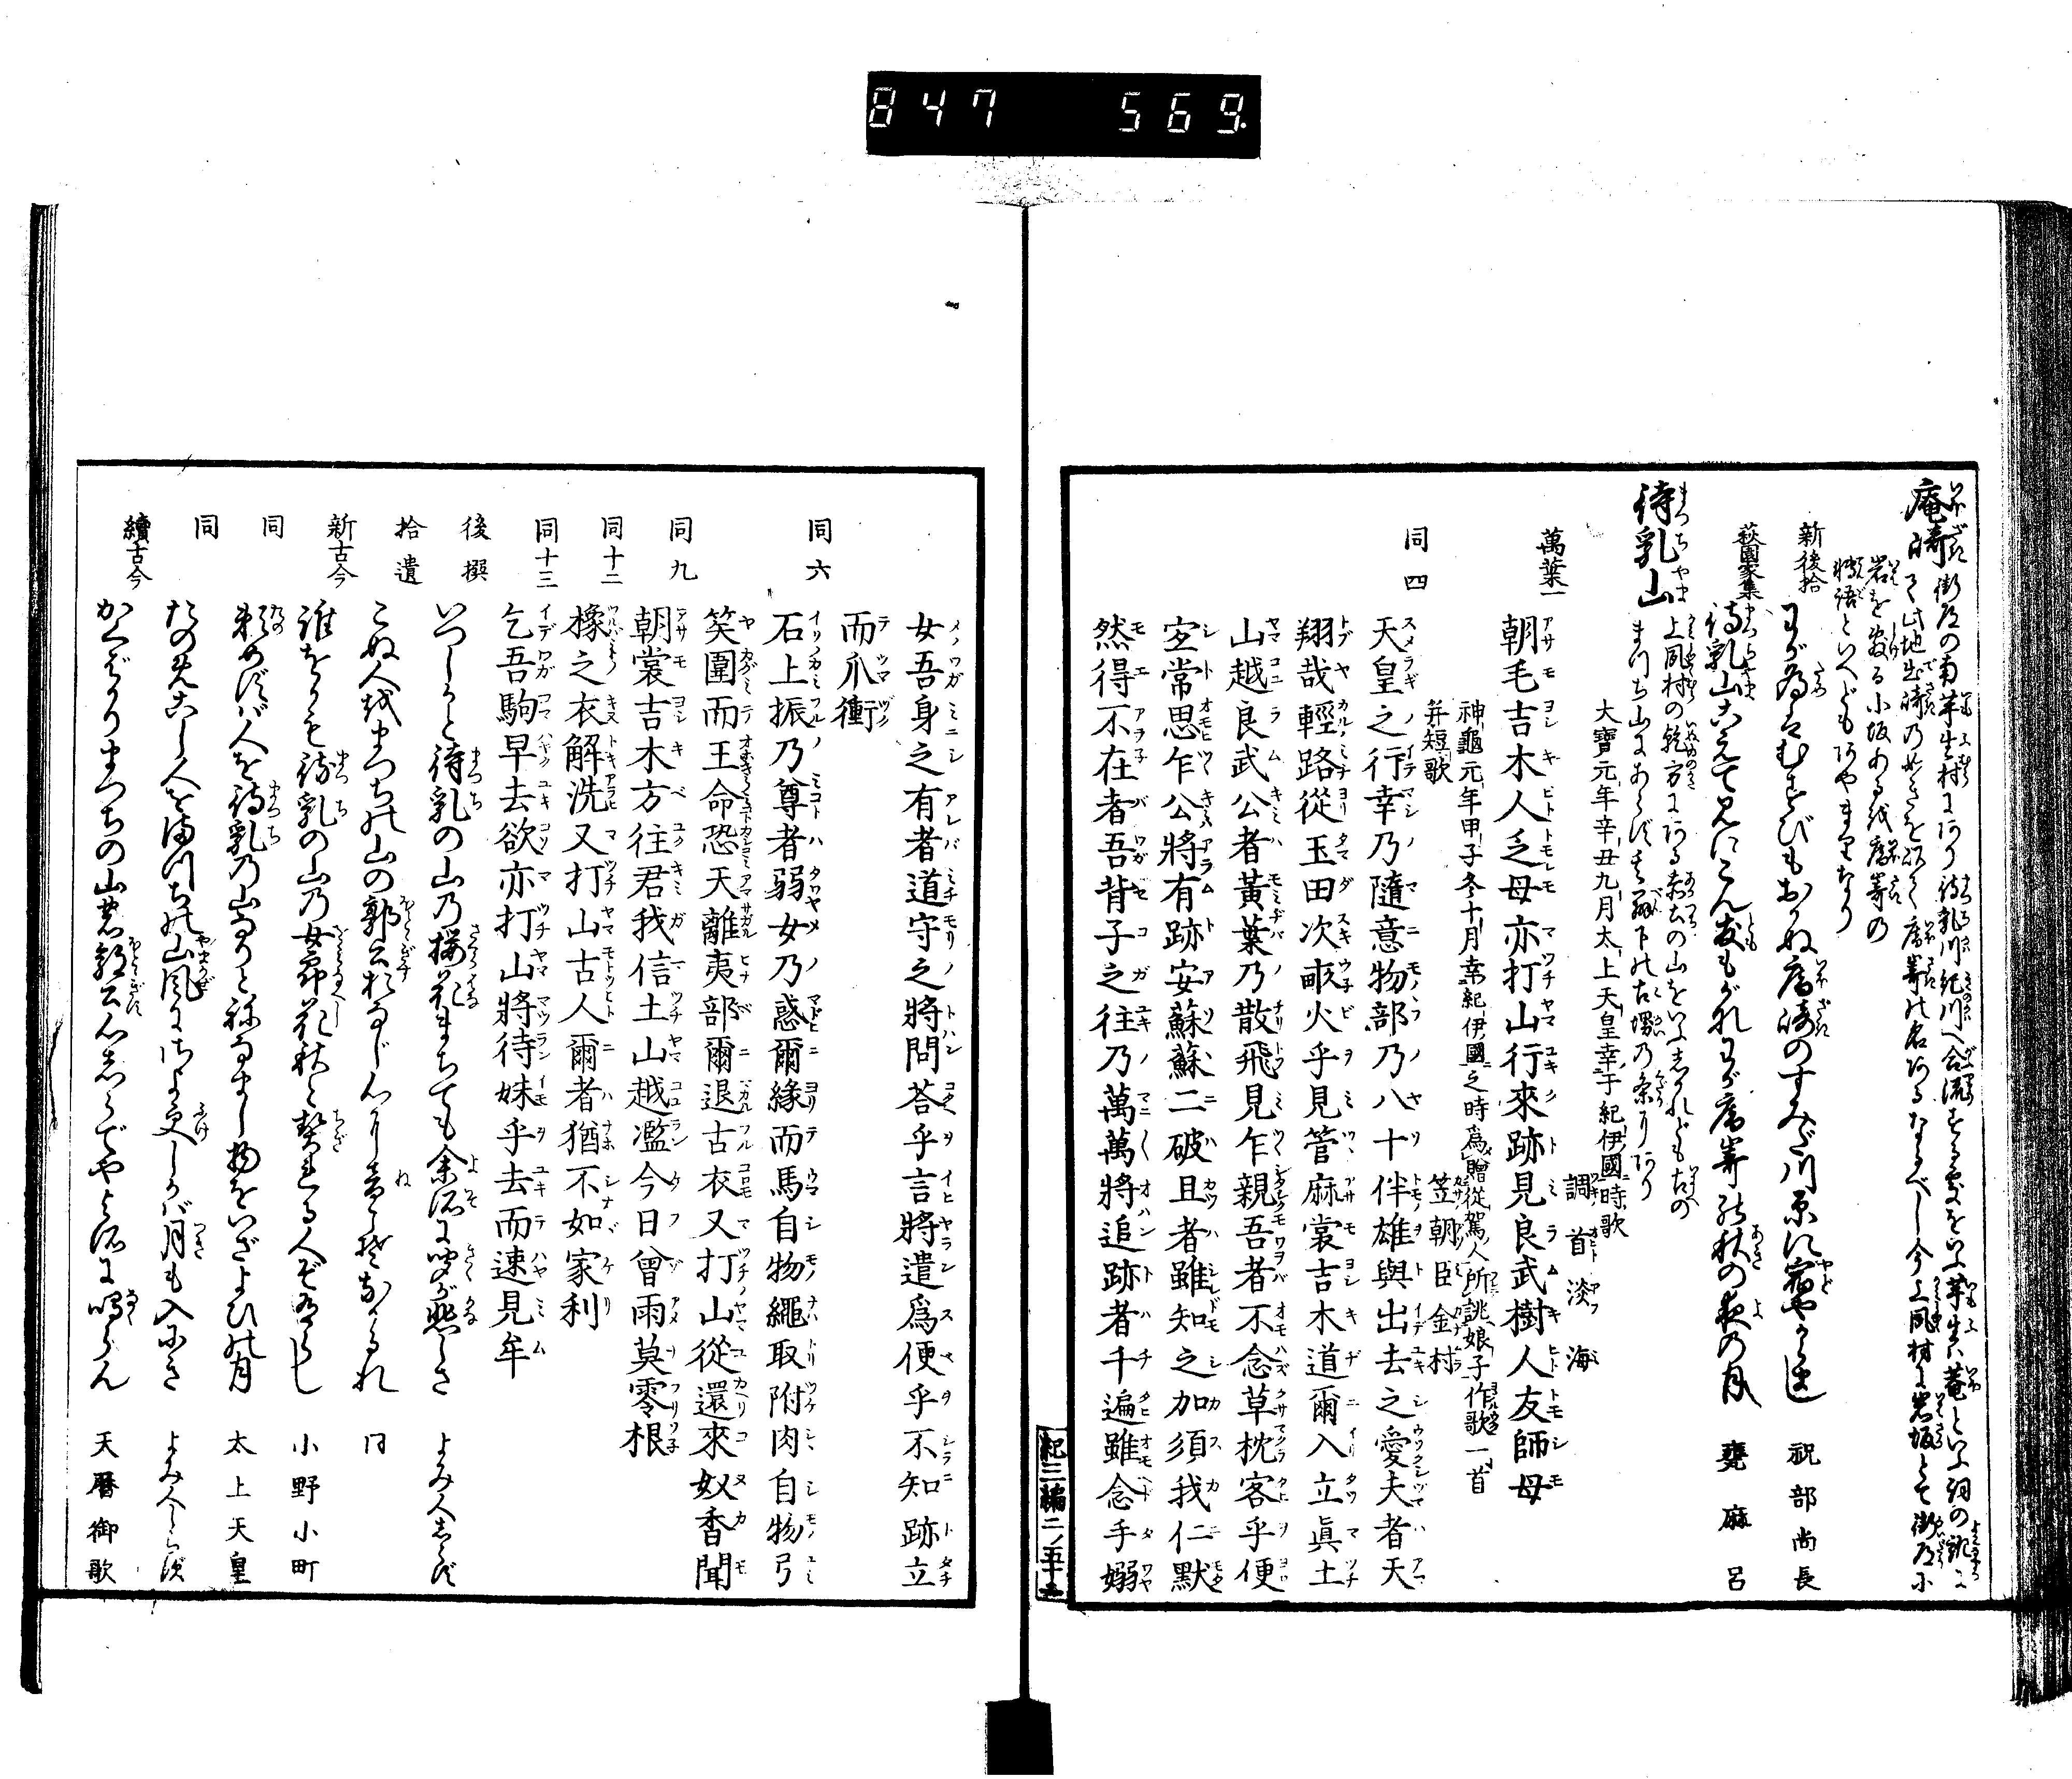 847 569
庵崎
街道の南芋生村にあり待乳川紀川へ合流する処をいふ芋生は菴といふ詞の訛に
て此地出崎の如きを以て庵崎の名あるなるべし今上夙村に岩坂とて街道に
岩を敷る小坂あるを庵崎の
轉語といへどもあやまりなり
新後拾
祝部尚長
萩園家集
待乳山こえて見にこん友もがれわが庵崎の秋の夜の月
甕麻呂
待乳山
上夙村の乾の方にある赤土の山をいふしかれども古の
まつち山にあらず其辨下の古堺の条りにあり
大寶元年辛丑九月太上天皇幸于紀伊國時歌
調首淡海
萬葉一
朝毛吉木人乏母亦打山行來跡見良武樹人友師母
神龜元年甲子冬十月幸紀伊國之時為贈從駕人所誂娘子作歌一首
并短歌
笠朝臣金村
同四
天皇之行幸乃隨意物部乃八十伴雄與出去之愛夫者天
翔哉輕路從玉田次畝火乎見管麻裳吉木道爾入立眞土
山越良武公者黃葉乃散飛見乍親吾者不念草枕客乎便
宐常思乍公將有跡安蘇蘇二破且者雖知之加須我仁默
然得不在者吾背子之往乃萬萬將追跡者千遍雖念手嫋
紀三編二ノ五十五
女吾身之有者道守之將問荅乎言將遣為便乎不知跡立
而爪衝
同六
石上振乃尊者弱女乃惑爾緣而馬自物繩取附肉自物弓
笶圍而王命恐天離夷部爾退古衣又打山從還來奴香聞
同九
朝裳吉木方往君我信土山越濫今日曾雨莫零根
同十二
橡之衣解洗又打山古人爾者猶不如家利
同十三
乞吾駒早去欲亦打山將待妹乎去而速見牟
後撰
いつしかと待乳の山乃櫻花まちても余所に聞が悲しさ
よみ人しらず
拾遺
こぬ人をまつちの山の郭公おなじ心に音こそなかるれ
同
新古今
誰をかも待乳の山乃女郎花秋と契れる人ぞあるらし
小野小町
同
頼めずば人を待乳乃山なりと祢なまし物をいざよひの月
太上天皇
同
たのめこし人をまつちの山風にさよ更しかば月も入にき
よみ人しらず
續古今
かくばかりまつちの山の郭公心しらでやよ所に鳴らん
天曆御歌